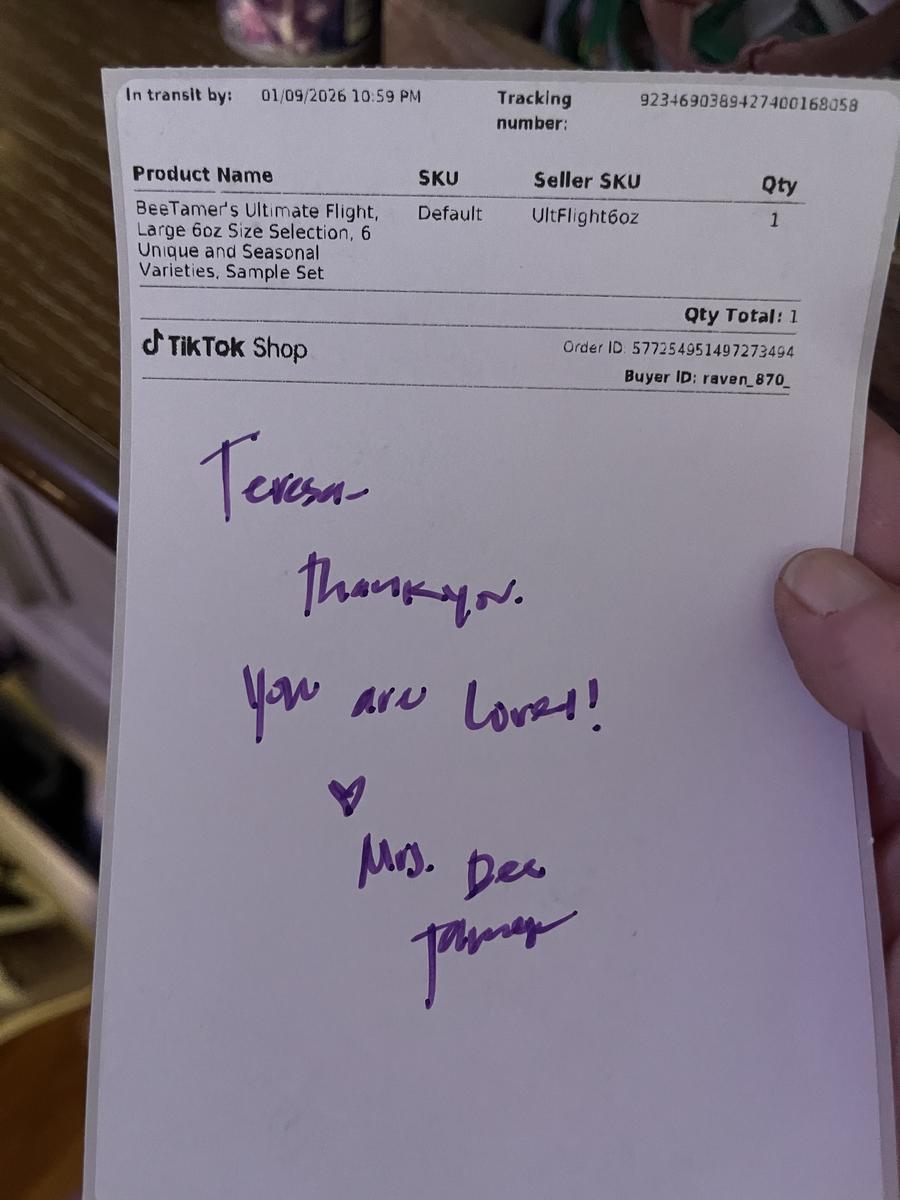 In transit by: 01/09/2026 10:59 PM Tracking number: 9234690389427400168058
Product Name SKU Seller SKU Qty
BeeTamer's Ultimate Flight, Default UltFlight6oz 1
Large 6oz Size Selection, 6
Unique and Seasonal
Varieties, Sample Set
Qty Total: 1
TikTok Shop Order ID: 577254951497273494
Buyer ID: raven_870_
Teresa-
Thank you.
You are Loved!
Mrs. Bee
Tamer